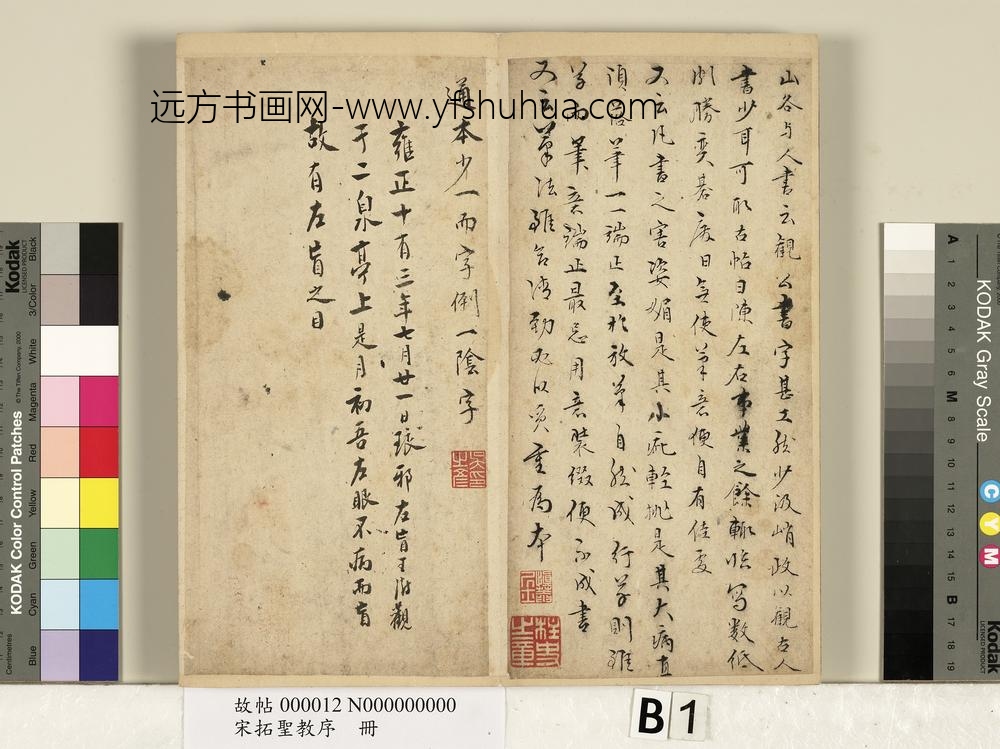 山谷与人書云觀公書字甚工然少波峭政以觀古人
書少耳可取古帖日陳左右事業之餘輙臨寫數紙
頗勝奕棊廢日無使筆意便自有佳處
又云凡書之害姿媚是其小疵輕佻是其大病直
須落筆一一端正至於放筆自然成行草則雖
草而筆意端正最忌用意裝綴便不成書
又云筆法雖欲清勁必以質重為本
通本少一而字倒一陰字
雍正十有三年七月廿一日琅邪左盲王澍觀
于二泉亭上是月初吾左眼不病而盲
故有左盲之目
远方书画网-www.yfshuhua.com
故帖 000012 N000000000
宋拓聖教序 冊
B 1
Kodak
LICENSED PRODUCT
Black
3/Color
White
Magenta
Red
Yellow
Green
Cyan
Blue
© The Tiffen Company, 2000
KODAK Color Control Patches
Centimetres
KODAK Gray Scale
C
Y
M
A 1 2 3 4 5 6 M 8 9 10 11 12 13 14 15 B 17 18 19
Kodak
LICENSED PRODUCT